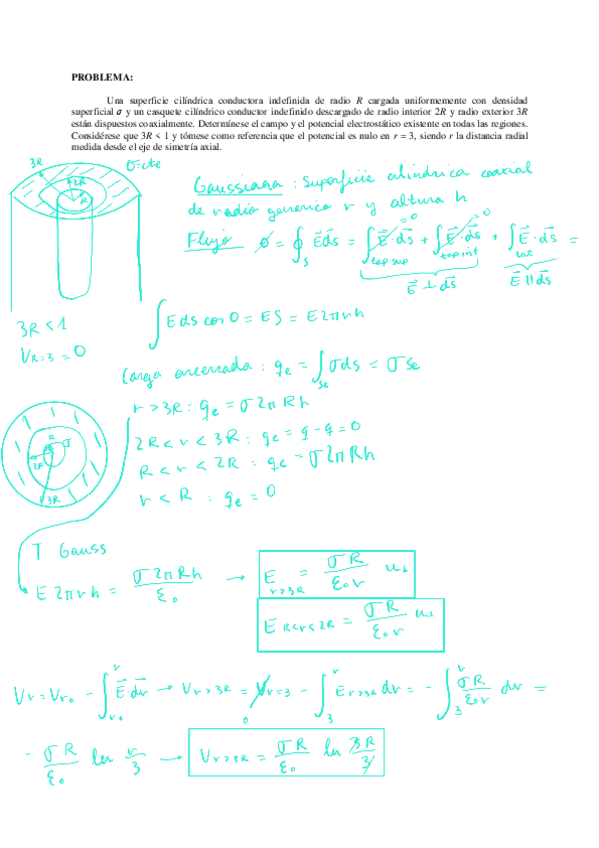 PROBLEMA:
Una superficie cilíndrica conductora indefinida de radio R cargada uniformemente con densidad
superficial σ y un casquete cilíndrico conductor indefinido descargado de radio interior 2R y radio exterior 3R
están dispuestos coaxialmente. Determínese el campo y el potencial electrostático existente en todas las regiones.
Considérese que 3R < 1 y tómese como referencia que el potencial es nulo en r = 3, siendo r la distancia radial
medida desde el eje de simetría axial.
3R
σ=cte
2R
R
Gaussiana : Superficie cilindrica coaxial
de radio generico r y altura h
Flujo ϕ = ∮s E⃗ds = ∫tap sup E⃗·ds⃗ =0 + ∫tap inf E⃗·ds⃗ =0 + ∫lat E⃗·ds⃗ =
E⃗ ⊥ ds⃗
E⃗ || ds⃗
∫ E ds cos 0 = ES = E2πrh
3R < 1
V_{R=3} = 0
Carga encerrada : qe = ∫se σds = σ Se
r > 3R : qe = σ 2π Rh
2R < r < 3R : qe = q - q = 0
R < r < 2R : qe = σ2πRh
r < R : qe = 0
R
σ
2R
3R
T Gauss
E 2πrh = σ 2πRh / ε₀ → E_{r>3R} = σR / ε₀r u⊥
E_{R<r<2R} = σR / ε₀r u⊥
Vr = Vr₀ - ∫_{r₀}^{r} E⃗·dr⃗ → V_{r>3R} = V_{r=3} 0 - ∫_{3}^{r} E_{r>3R} dr = - ∫_{3}^{r} σR / ε₀r dr =
- σR / ε₀ ln r/3 → V_{r>3R} = σR / ε₀ ln